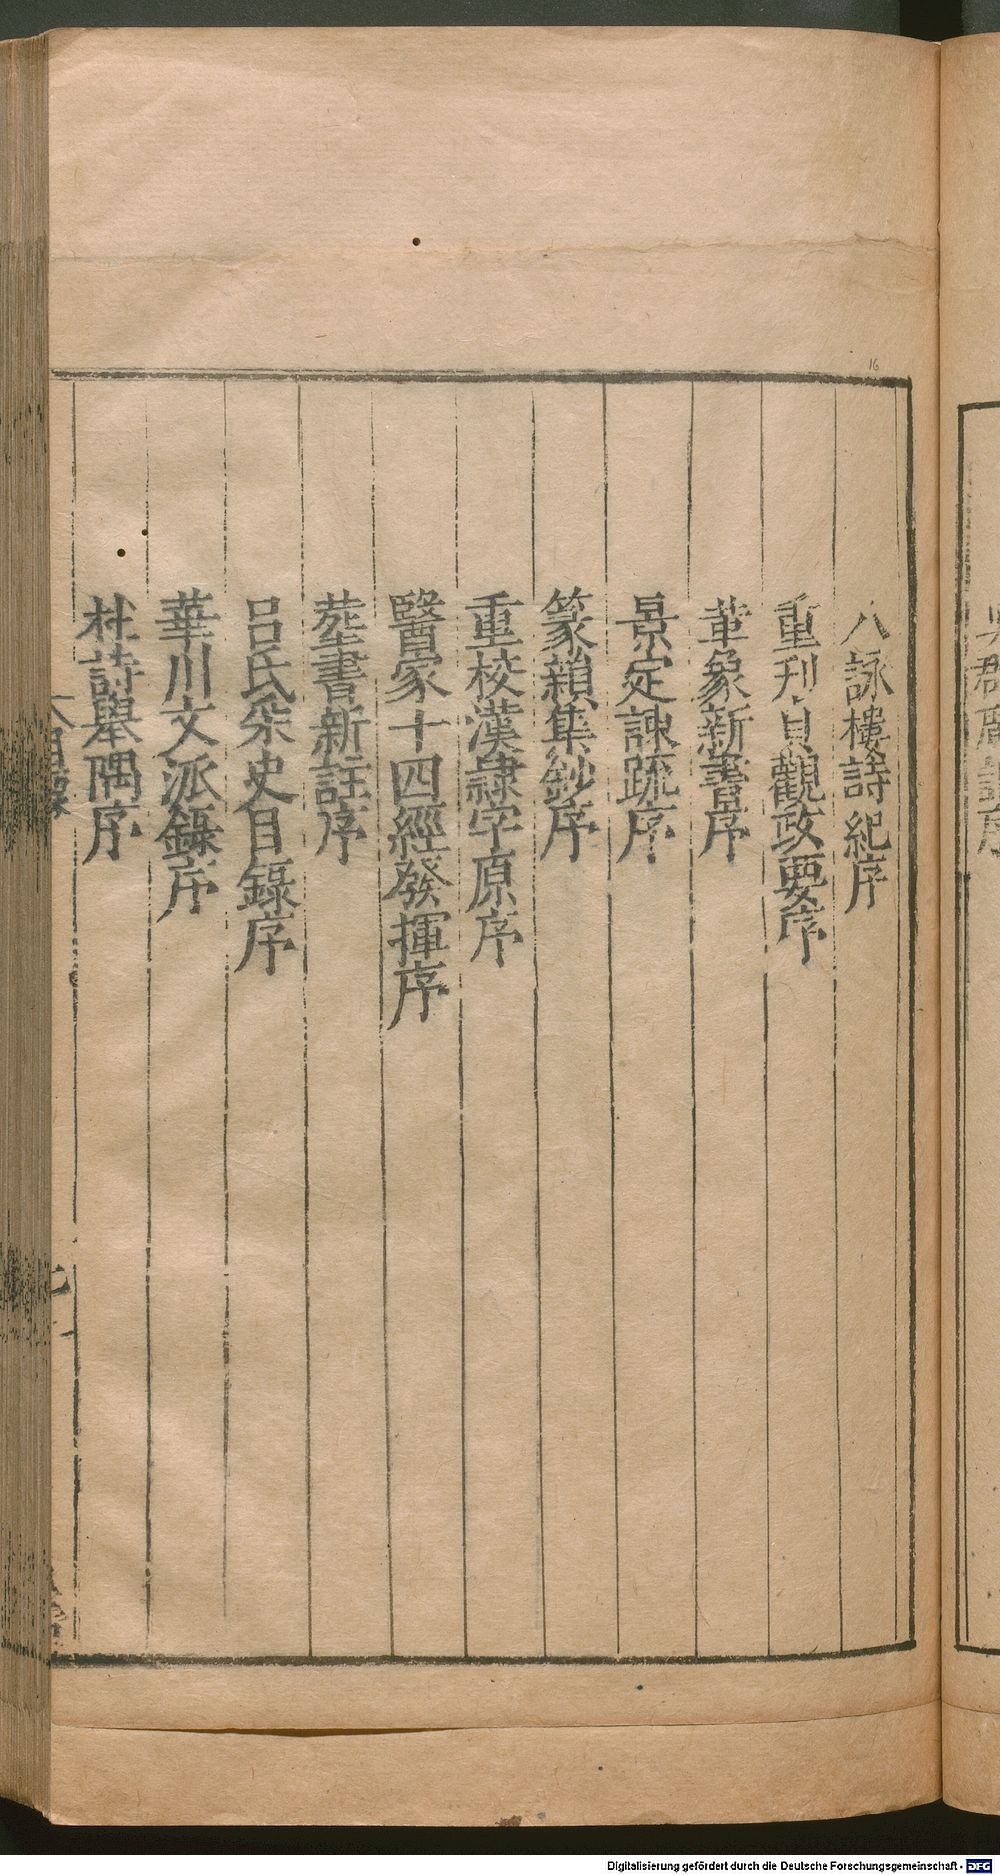 八詠樓詩紀序
重刊貞觀政要序
革象新書序
景定諫疏序
篆韻集鈔序
重校漢隷字原序
醫家十四經發揮序
葬書新註序
呂氏采史目錄序
華川文派錄序
杜詩舉隅序
16
Digitalisierung gefördert durch die Deutsche Forschungsgemeinschaft - DFG